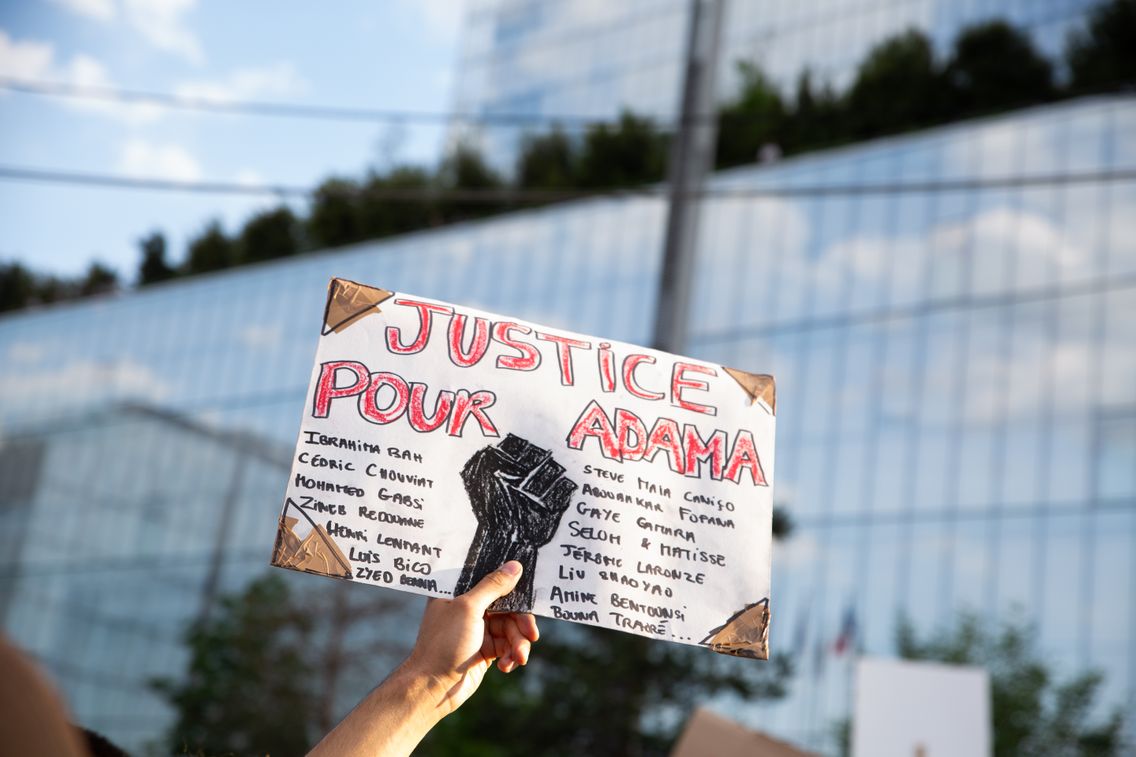 JUSTICE
POUR ADAMA
IBRAHIMA BAH
CÉDRIC CHOUVIAT
MOHAMED GABSI
ZINEB REDOUANE
HENRI LENFANT
LUIS BICO
ZYED BENNA...
STEVE MAIA CANIÇO
ABOUBAKAR FOFANA
GAYE CAMARA
SELOM & MATISSE
JÉRÔME LARONZE
LIU SHAOYAO
AMINE BENTOUNSI
BOUNA TRAORÉ...